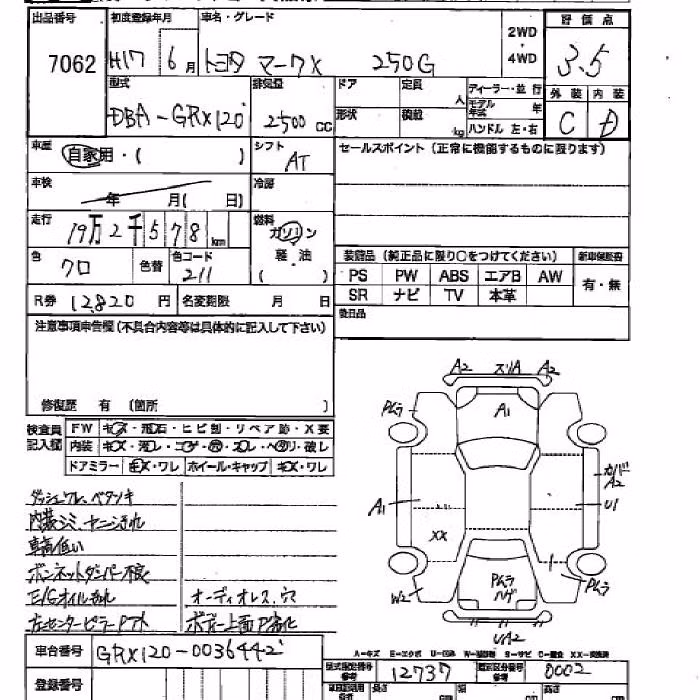 出品番号 初度登録年月 車名・グレード 2WD・4WD 評価点
7062 H17 6月 トヨタ マークX 250G 3.5
型式 排気量 ドア 定員 人 ディーラー・並行 外装 内装
DBA-GRX120 2500cc 形状 積載 kg モデル年式 年 ハンドル 左・右 C D
車歴 自家用・( ) シフト AT セールスポイント (正常に機能するものに限ります)
車検 年 月( 日) 冷房
走行 19万2千578km 燃料 ガソリン 軽油 ( )
装備品 (純正品に限り○をつけてください) 新車保証書
色 クロ 色替 色コード 211
PS PW ABS エアB AW 有・無
SR ナビ TV 本革
R券 12,820円 名変期限 月 日
後日品
注意事項申告欄 (不具合内容等は具体的に記入して下さい)
修復歴 有 (箇所 )
検査員記入欄 FW キズ・飛石・ヒビ割・リペア跡・X要
内装 キズ・汚レ・コゲ・穴・スレ・ベタリ・破レ
ドアミラー キズ・ワレ ホイール・キャップ キズ・ワレ
A2 スリA A2
Pムラ A1
カバー A2
A1 U1
XX
Pムラ ハゲ Pムラ
W2
UA2
ダッシュワレ、ベタツキ
内装シミ、ヤニヨゴれ
車高低い
ボンネットダンパー不良
E/Gオイルもれ オーディオレス、穴
左センターピラーPアト ボデー上面P劣化
A-キズ E-エクボ U-凹み W-補修跡 S-サビ C-腐食 XX-交換済
車台番号 GRX120-0036442
型式指定番号 参考 12737 類別区分番号 参考 0002
登録番号 車両記載用 参考 長さ cm 幅 cm 高さ cm